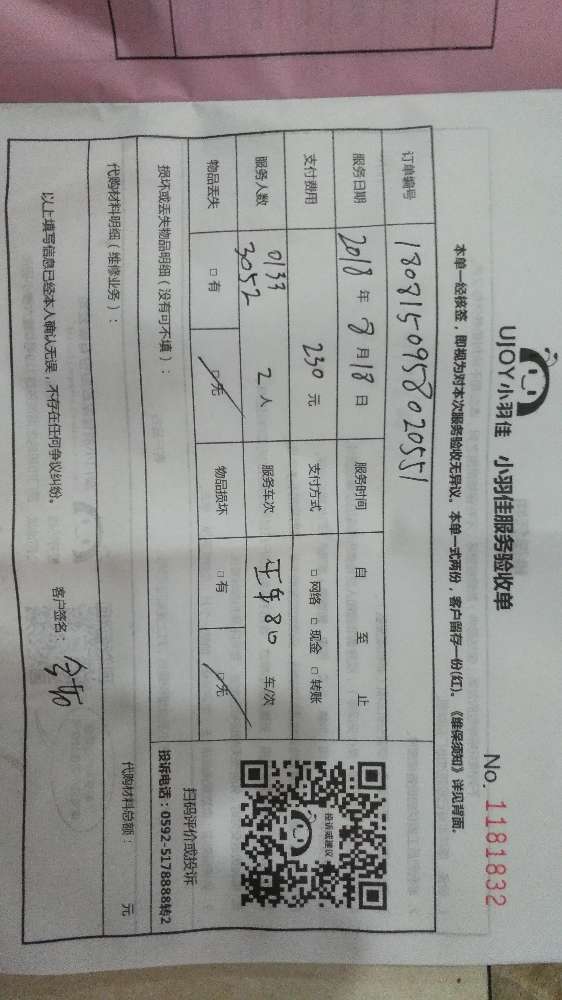 UJOY小羽佳 小羽佳服务验收单
No. 1181832
本单一经核签，即视为对本次服务验收无异议。本单一式两份，客户留存一份(红)。《维保须知》详见背面。
订单编号 1808150958020551
服务日期 2018 年 8 月 18 日 服务时间 自 至 止
支付费用 230 元 支付方式 □ 网络 □ 现金 □ 转账
服务人数 0133 3052 2 人 服务车次 80 车/次
物品丢失 □ 有 □ 无 物品损坏 □ 有 □ 无
投诉或建议
扫码评价或投诉
投诉电话：0592-5178888转2
损坏或丢失物品明细（没有可不填）：
代购材料明细（维修业务）：
代购材料总额： 元
以上填写信息已经本人确认无误，不存在任何争议纠纷。
客户签名：